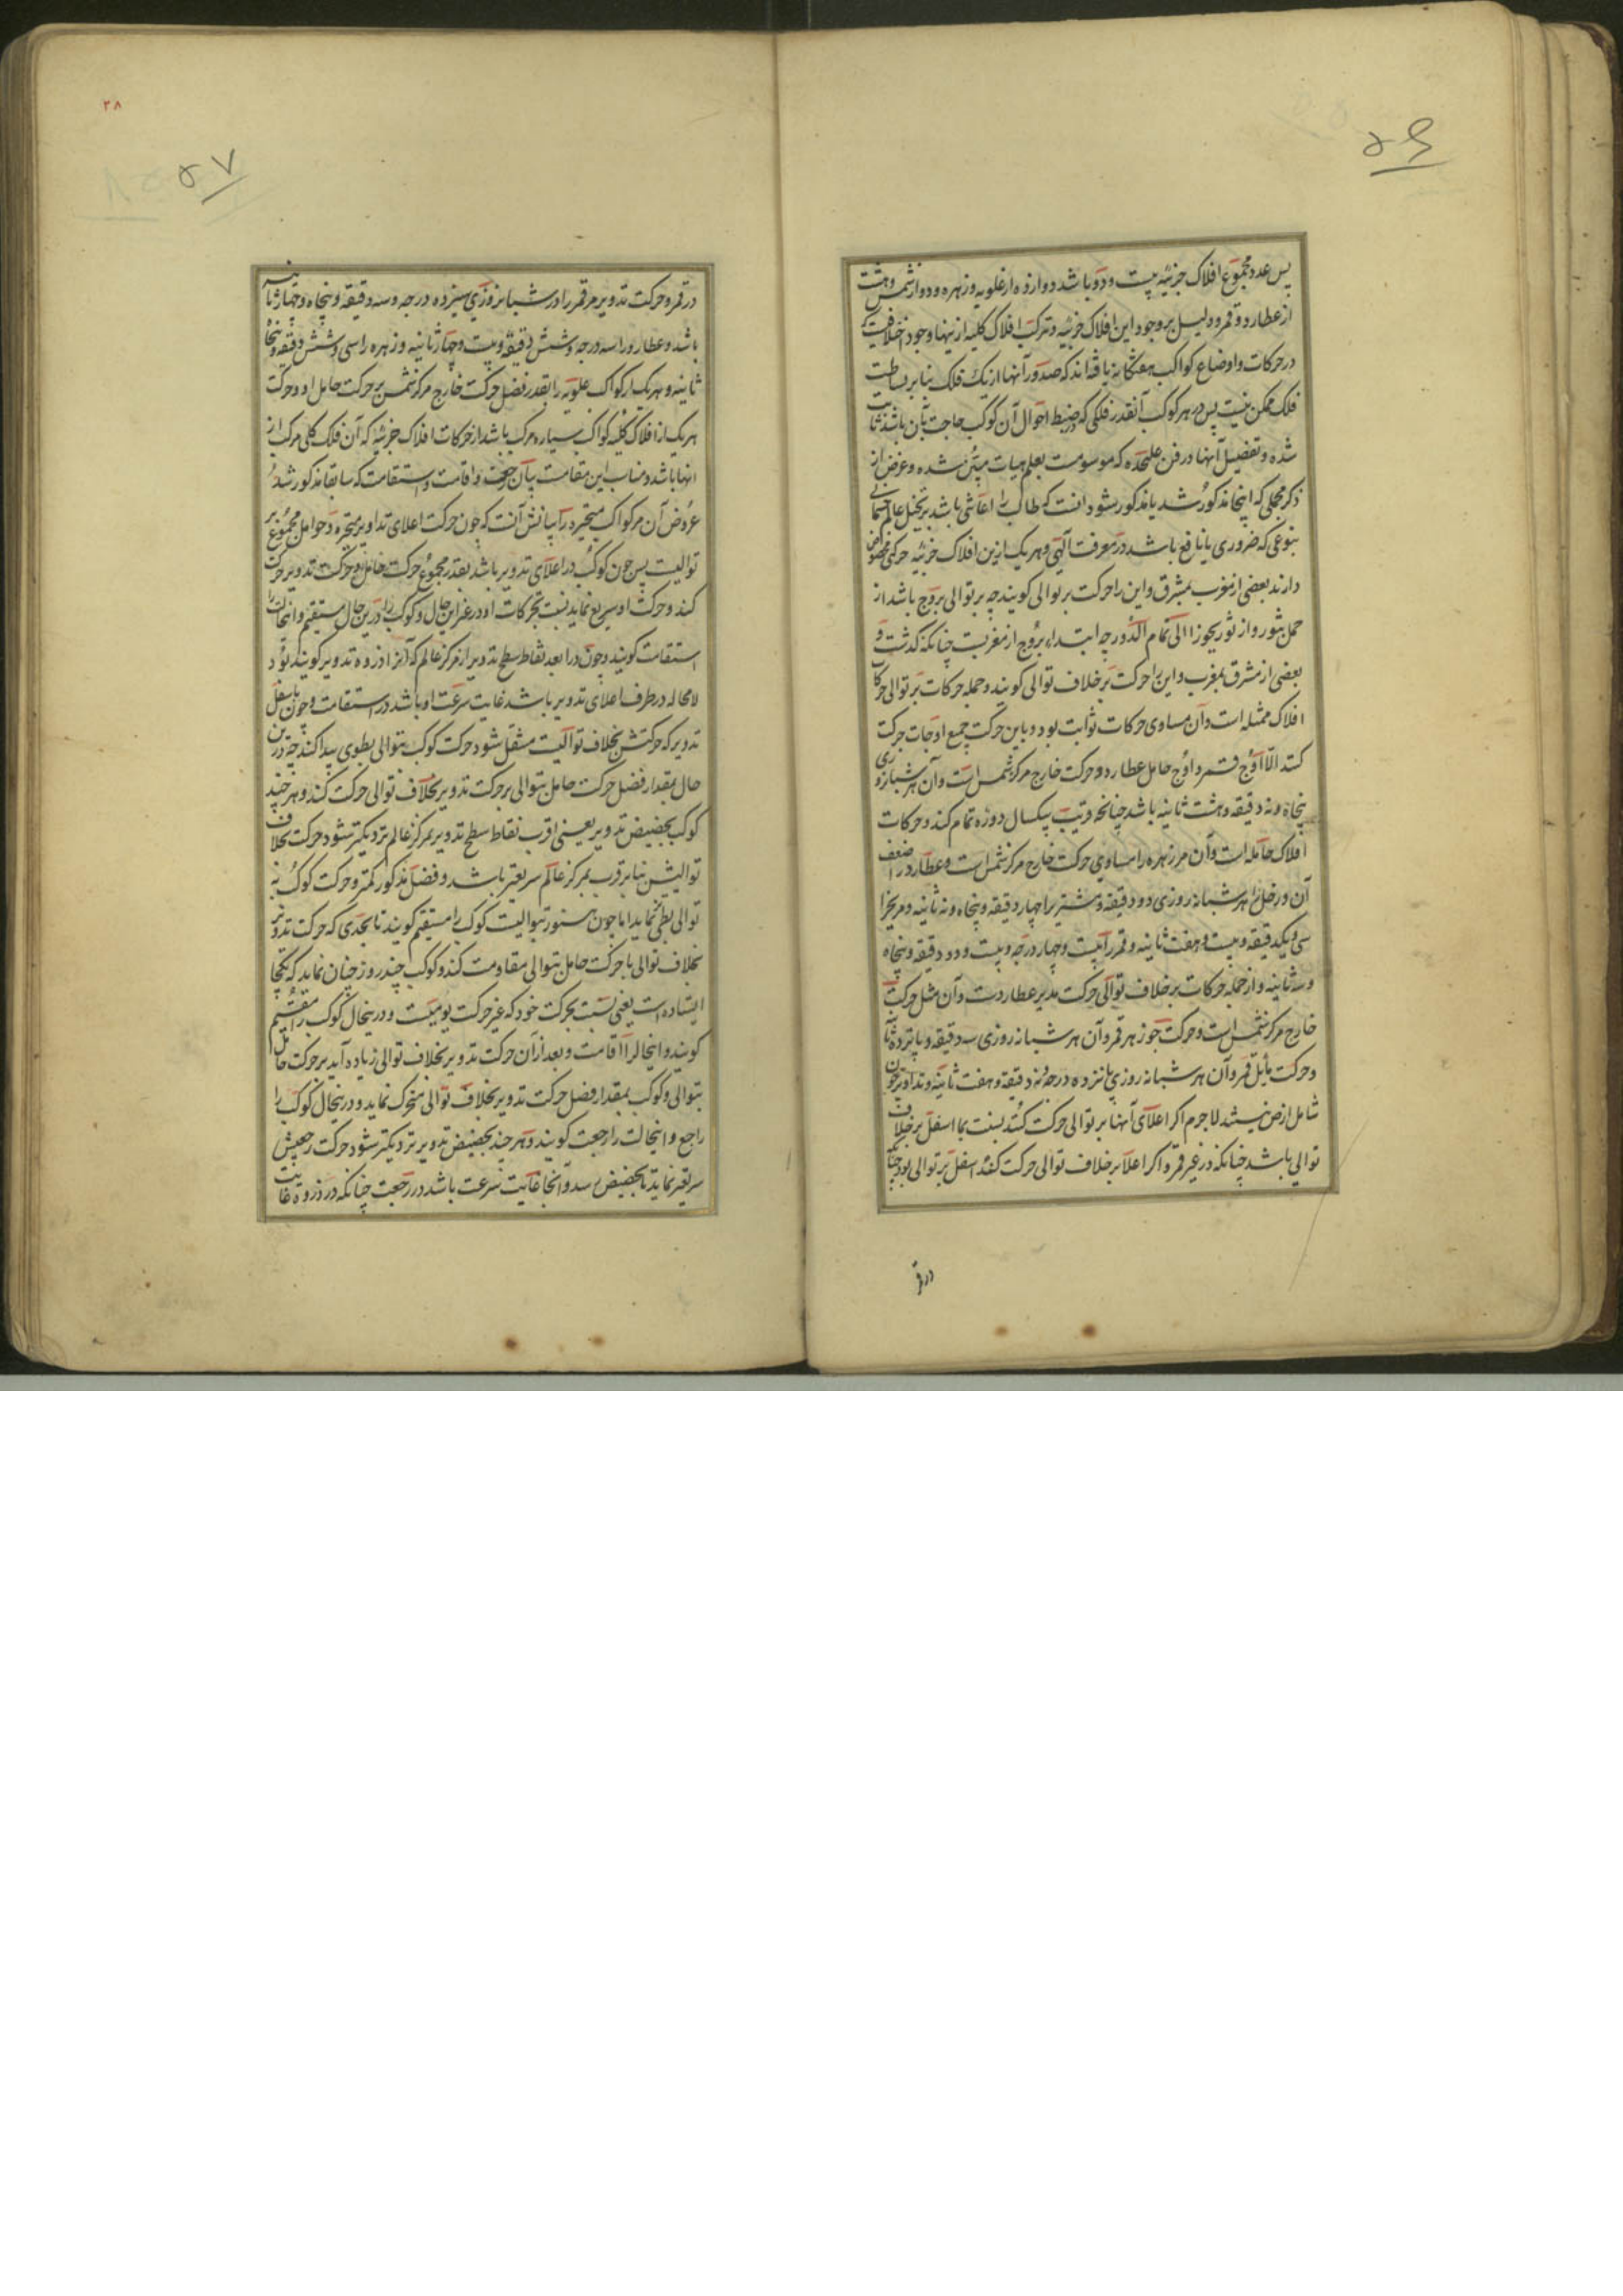 ۵۶
پس عدد مجموع افلاک جزئیه بیست و دو باشد دوازده از علویه و زهره و دو از شمس و هشت
از عطارد و قمر و دلیل بر وجود این افلاک جزئیه و ترکب افلاک کلیه ازینها وجود اختلافیست که
در حرکات و اوضاع کواکب هفتگانه یافته‌اند که صدور آنها از یک فلک بنا بر بساطت
فلک ممکن نیست پس در هر کوکب آنقدر فلکی که در ضبط احوال آن کوکب حاجت بآن باشد ثابت
شده و تفصیل آنها در فن علیحده که موسومست بعلم هیات مبیّن شده و غرض از
ذکر مجملی که اینجا مذکور شد یا مذکور بشود انست که طالب را اعانتی باشد بر تخیل عالم جسمانی
بنوعی که ضروری یا نافع باشد در معرفت آلهی و هر یک ازین افلاک جزئیه حرکتی مخصوص
دارند بعضی از مغرب بمشرق و این را حرکت بر توالی کویند چه بر توالی بروج باشد از
حمل بثور و از ثور بجوزا الی تمام الدور چه ابتداء بروج از مغربست چنانکه کذشت و
بعضی از مشرق بمغرب و این را حرکت بر خلاف توالی کویند و جمله حرکات بر توالی حرکات
افلاک ممثله است و آن مساوی حرکات ثوابت بود و باین حرکت جمیع اوجات حرکت
کنند الا اوج قمر و اوج حامل عطارد و حرکت خارج مرکز شمس است و آن هر شبانروزی
پنجاه و نه دقیقه و هشت ثانیه باشد چنانچه قریب بیکسال دوره تمام کند و حرکات
افلاک حامله است و آن مر زهره را مساوی حرکت خارج مرکز شمس است و عطارد را ضعف
آن و زحل را هر شبانه روزی دو دقیقه و مشتری را چهار دقیقه و پنجاه و نه ثانیه و مریخ را
سی و یکدقیقه و بیست و هفت ثانیه و قمر را بیست و چهار درجه و بیست و دو دقیقه و پنجاه
و سه ثانیه و از جمله حرکات بر خلاف توالی حرکت مدیر عطاردست و آن مثل حرکت
خارج مرکز شمس است و حرکت جوزهر قمر و آن هر شبانه روزی سه دقیقه و یازده ثا
و حرکت مایل قمر و آن هر شبانه روزی یانزده درجه و نه دقیقه و هفت ثانیه و تداویر چون
شامل ارض نیستند لاجرم اکر اعلای آنها بر توالی حرکت کنند نسبت بما اسفل بر خلاف
توالی باشد چنانکه در غیر قمر و اکر اعلا بر خلاف توالی حرکت کند اسفل بر توالی بود چنانکه
در قمر
۲۸
۵۷
در قمر و حرکت تدویر مر قمر را در شبانروزی سیزده درجه و سه دقیقه و پنجاه و چهار ثانیه
باشد و عطارد را سه درجه و شش دقیقه و بیست و چهار ثانیه و زهره را سی و شش دقیقه و پنجاه
ثانیه و هر یک از کواکب علویه را بقدر فضل حرکت خارج مرکز شمس بر حرکت حامل او و حرکت
هر یک از افلاک کلیه کواکب سیاره مرکب باشد از حرکات افلاک جزئیه که آن فلک کلی مرکب از
انها باشد و مناسب این مقامست بیان رجعت و اقامت و استقامت که سابقا مذکور شد
عروض آن مر کواکب متحیره را بیانش آنست که چون حرکت اعلای تداویر متحیره و حوامل مجموع بر
توالیست پس چون کوکب در اعلای تدویر باشد بقدر مجموع حرکت حامل و حرکت تدویر حرکت
کند و حرکت او سریع نماید نسبت بحرکات او در غیر این حال و کوکب را درین حال مستقیم و انحالت را
استقامت کویند و چون در ابعد نقاط سطح تدویر از مرکز عالم که آنرا ذروه تدویر کویند بود
لامحاله در طرف اعلای تدویر باشد غایت سرعت او باشد در استقامت و چون باسفل
تدویر که حرکتش بخلاف توالیست منتقل شود حرکت کوکب بتوالی بطوی پیدا کند چه درین
حال بمقدار فضل حرکت حامل بتوالی بر حرکت تدویر بخلاف توالی حرکت کند و هر چند
کوکب بحضیض تدویر یعنی اقرب نقاط سطح تدویر بمرکز عالم نزدیکتر شود حرکت بخلاف
توالیش بنا بر قرب بمرکز عالم سریعتر باشد و فضل مذکور کمتر و حرکت کوکب به
توالی بطی‌ء نماید اما چون هنوز بتوالیست کوکب را مستقیم کویند تا بحدی که حرکت تدویر
بخلاف توالی با حرکت حامل بتوالی مقاومت کند و کوکب چند روز چنان نماید که یکجا
ایستاده است یعنی نسبت بحرکت خود که غیر حرکت یومیست و درینحال کوکب را مقیم
کویند و اینحال را اقامت و بعد از آن حرکت تدویر بخلاف توالی زیاده آید بر حرکت حامل
بتوالی و کوکب بمقدار فضل حرکت تدویر بخلاف توالی متحرک نماید و درینحال کوکب را
راجع و اینحالت را رجعت کویند و هر چند بحضیض تدویر نزدیکتر شود حرکت رجعیش
سریعتر نماید تا بحضیض رسد و آنجا غایت سرعت باشد در رجعت چنانکه در ذروه غایت